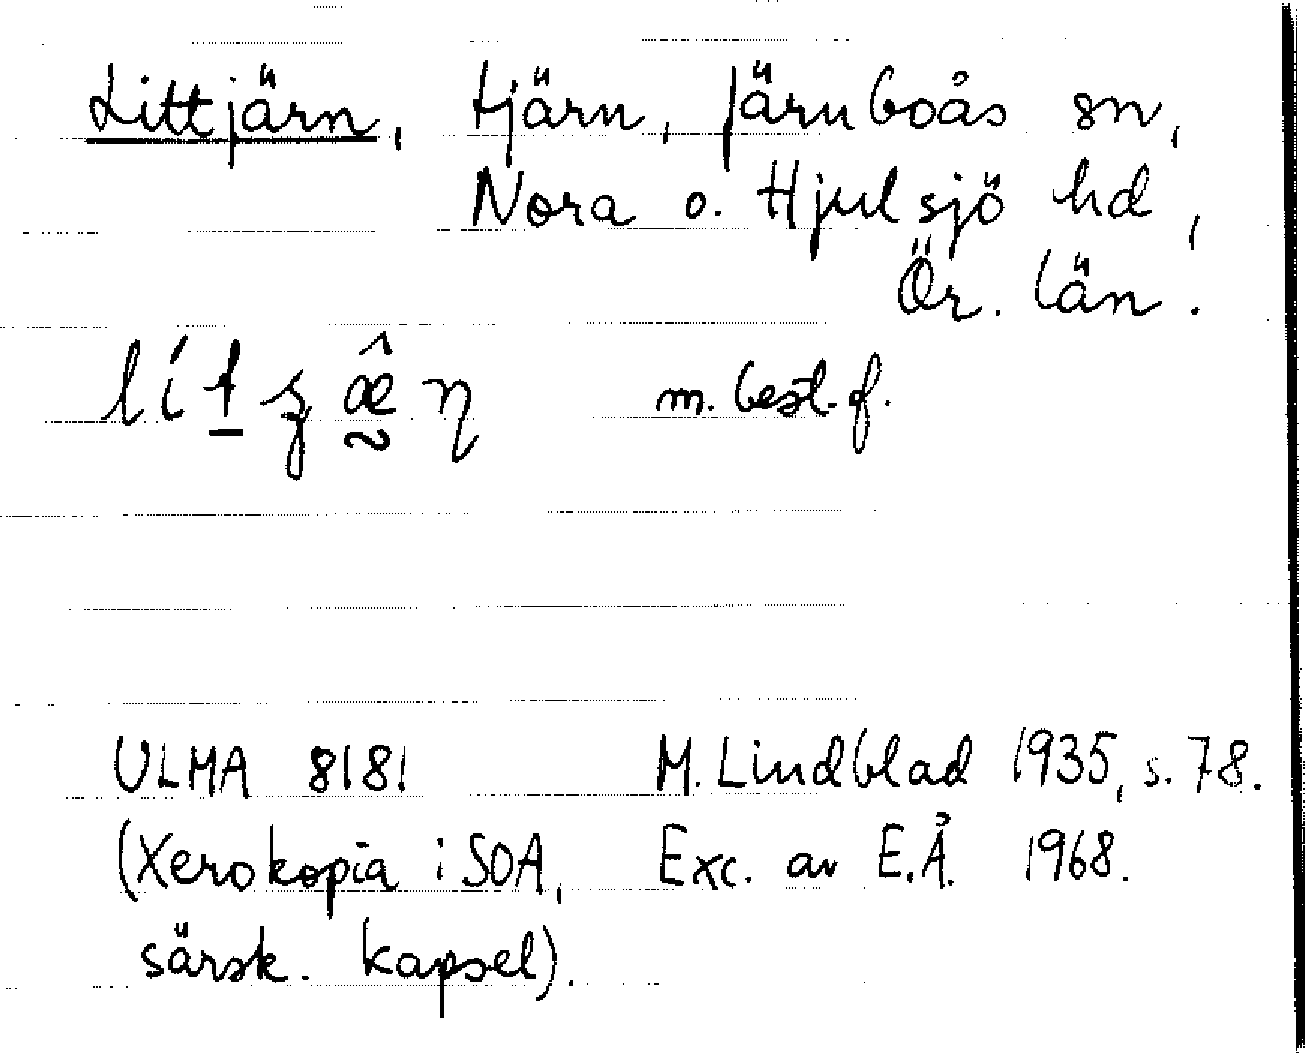 Littjärn, tjärn, Järnboås sn,
Nora o. Hjulsjö hd,
Ör. län.
m. best. f.
ULMA 8181 M. Lindblad 1935, s. 78.
(Xerokopia i SOA, Exc. av E.Å. 1968.
särsk. kapsel).